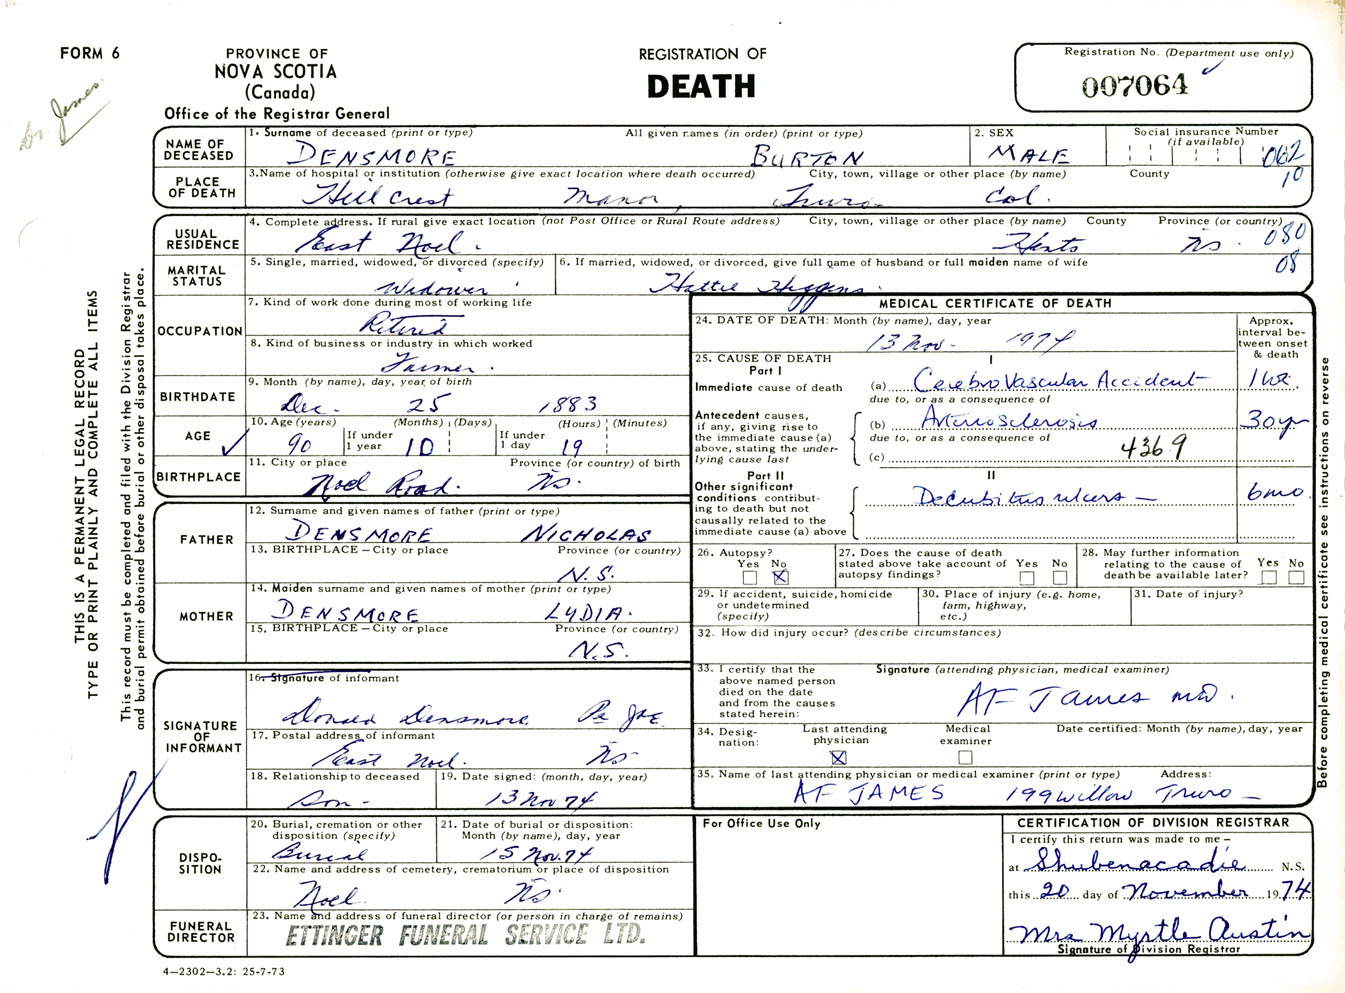 FORM 6
PROVINCE OF
NOVA SCOTIA
(Canada)
Office of the Registrar General
REGISTRATION OF
DEATH
Registration No. (Department use only)
007064
Dr. James
THIS IS A PERMANENT LEGAL RECORD
TYPE OR PRINT PLAINLY AND COMPLETE ALL ITEMS
This record must be completed and filed with the Division Registrar
and burial permit obtained before burial or other disposal takes place.
NAME OF DECEASED
1. Surname of deceased (print or type) All given names (in order) (print or type)
DENSMORE BURTON
2. SEX
MALE
Social insurance Number
(if available)
062
PLACE OF DEATH
3. Name of hospital or institution (otherwise give exact location where death occurred) City, town, village or other place (by name) County
10
Hillcrest Manor, Truro Col.
USUAL RESIDENCE
4. Complete address. If rural give exact location (not Post Office or Rural Route address) City, town, village or other place (by name) County Province (or country)
East Noel. Hants NS. 080
MARITAL STATUS
5. Single, married, widowed, or divorced (specify)
Widower
6. If married, widowed, or divorced, give full name of husband or full maiden name of wife
08
Hattie Higgens
OCCUPATION
7. Kind of work done during most of working life
Retired
8. Kind of business or industry in which worked
Farmer.
BIRTHDATE
9. Month (by name), day, year of birth
Dec. 25 1883
AGE
10. Age (years) (Months) (Days) (Hours) (Minutes)
90 If under 1 year 10 If under 1 day 19
BIRTHPLACE
11. City or place Province (or country) of birth
Noel Road. NS.
FATHER
12. Surname and given names of father (print or type)
DENSMORE NICHOLAS
13. BIRTHPLACE – City or place Province (or country)
N.S.
MOTHER
14. Maiden surname and given names of mother (print or type)
DENSMORE LYDIA.
15. BIRTHPLACE – City or place Province (or country)
N.S.
SIGNATURE OF INFORMANT
16. Signature of informant
Donald Densmore
17. Postal address of informant
East Noel. NS
18. Relationship to deceased
Son -
19. Date signed: (month, day, year)
13 Nov 74
DISPOSITION
20. Burial, cremation or other disposition (specify)
Burial
21. Date of burial or disposition: Month (by name), day, year
15 Nov. 74
22. Name and address of cemetery, crematorium or place of disposition
Noel NS.
FUNERAL DIRECTOR
23. Name and address of funeral director (or person in charge of remains)
ETTINGER FUNERAL SERVICE LTD.
4—2302—3.2: 25-7-73
MEDICAL CERTIFICATE OF DEATH
24. DATE OF DEATH: Month (by name), day, year
13 Nov. 1974
Approx. interval between onset & death
25. CAUSE OF DEATH
Part I I
Immediate cause of death (a) Cerebro Vascular Accident 1 wk.
due to, or as a consequence of
Antecedent causes, if any, giving rise to the immediate cause (a) above, stating the underlying cause last
(b) Arteriosclerosis 30 yr
due to, or as a consequence of
4369
(c)
Part II II
Other significant conditions contributing to death but not causally related to the immediate cause (a) above
Decubitus ulcers — 6 mo
26. Autopsy?
Yes No
27. Does the cause of death stated above take account of autopsy findings? Yes No
28. May further information relating to the cause of death be available later? Yes No
29. If accident, suicide, homicide or undetermined (specify)
30. Place of injury (e.g. home, farm, highway, etc.)
31. Date of injury?
32. How did injury occur? (describe circumstances)
33. I certify that the above named person died on the date and from the causes stated herein:
Signature (attending physician, medical examiner)
AF James MD.
34. Designation:
Last attending physician
Medical examiner
Date certified: Month (by name), day, year
35. Name of last attending physician or medical examiner (print or type) Address:
AF JAMES 199 Willow Truro —
Before completing medical certificate see instructions on reverse
For Office Use Only
CERTIFICATION OF DIVISION REGISTRAR
I certify this return was made to me –
at Shubenacadie N.S.
this 20 day of November 1974
Mrs Myrtle Austin
Signature of Division Registrar